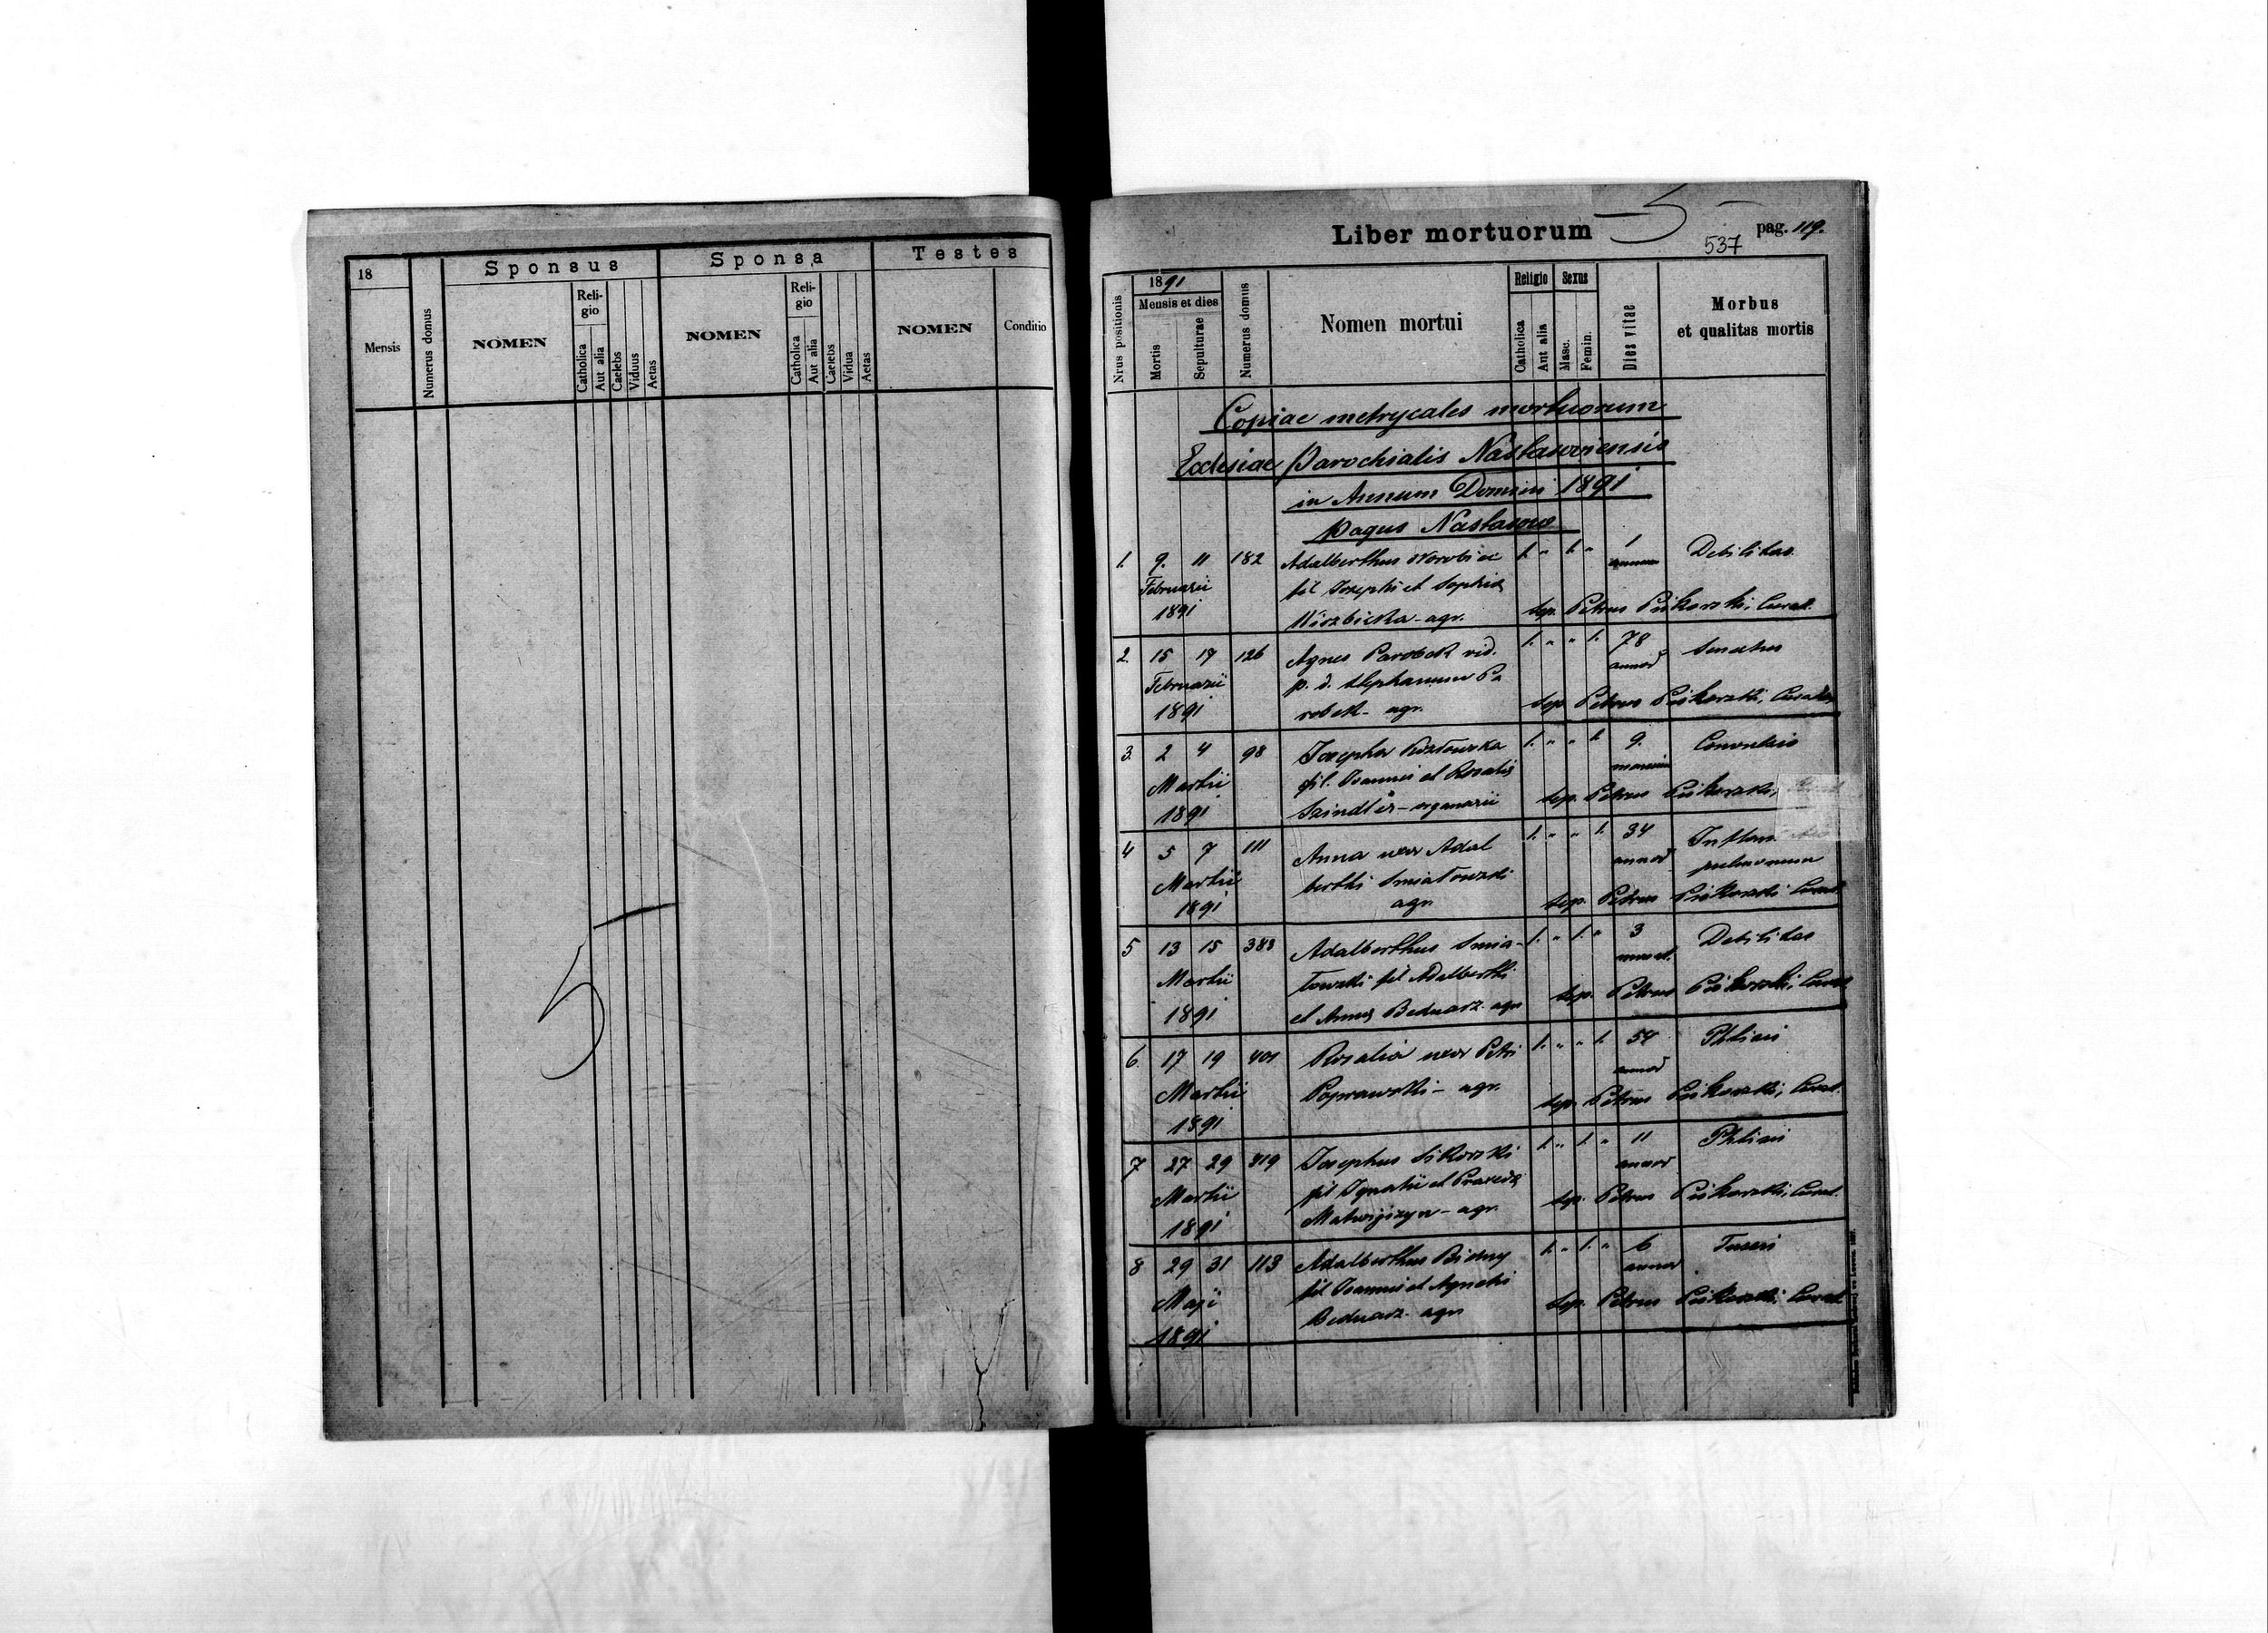 18
Mensis
Numerus domus
Sponsus
NOMEN
Reli-
gio
Catholica
Aut alia
Caelebs
Viduus
Aetas
Sponsa
NOMEN
Reli-
gio
Catholica
Aut alia
Caelebs
Vidua
Aetas
Testes
NOMEN
Conditio
5
Liber mortuorum
5
537
pag. 119.
Nrus positionis
1891
Mensis et dies
Mortis
Sepulturae
Numerus domus
Nomen mortui
Religio
Catholica
Aut alia
Sexus
Masc.
Femin.
Dies vitae
Morbus
et qualitas mortis
Copiae metrycales mortuorum
Ecclesiae parochialis Nastasoviensis
in Annum Domini 1891
pagus Nastasow
1. 9. 11 182 Adalberthus Worobiec 1. " 1. " 1 Debilitas
Februarii fil Josephi et Sophia
1891 agr. sep. Petrus Curat.
2. 15 17 126 Agnes Parobek vid. 1. " " 1. 78 Senectus
Februarii p. d. Stephanum Pa annor
1891 robek - agr. sep. Petrus
3. 2 4 98 Josepha 1. " " 1. 9.
Martii fil. Joannis et Rosalia
1891 organarii sep. Petrus
4 5 7 111 Anna uxor Adal 1. " " 1. 34
Martii berthi Smiatowski annor pulmonum
1891 agr. sep. Petrus Curat.
5 13 15 383 Adalberthus Smia- 1. " 1. " 3 Debilitas
Martii towski fil Adalberthi
1891 et Anna Bednarz. agr. sep. Petrus
6. 17 19 401 Rosalia uxor Petri 1. " " 1. 54 Phtisis
Martii Poprawski - agr. annor
1891 sep. Petrus Curat.
7 27 29 419 Josephus Sikorski 1. " 1. " 11 Phtisis
Martii fil Ignatii et annor
1891 agr. sep. Petrus Curat.
8 29 31 113 Adalberthus 1. " 1. " 6 Tussis
Maji fil Joannis et Agnetis annor
1891 Bednarz. agr. sep. Petrus Curat.